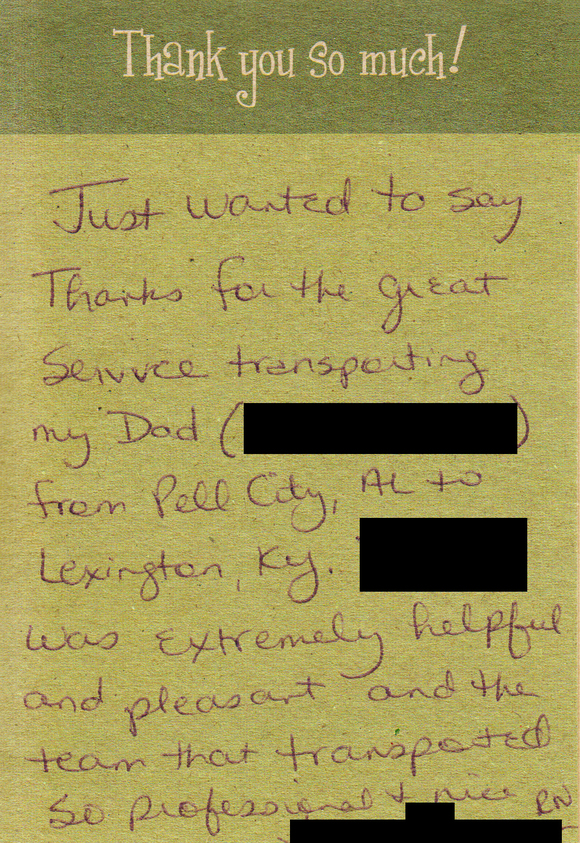 Thank you so much!
Just wanted to say
Thanks for the great
Service transporting
my Dad (
)
from Pell City, AL to
Lexington, Ky.
was extremely helpful
and pleasant and the
team that transported
So professional & nice RN